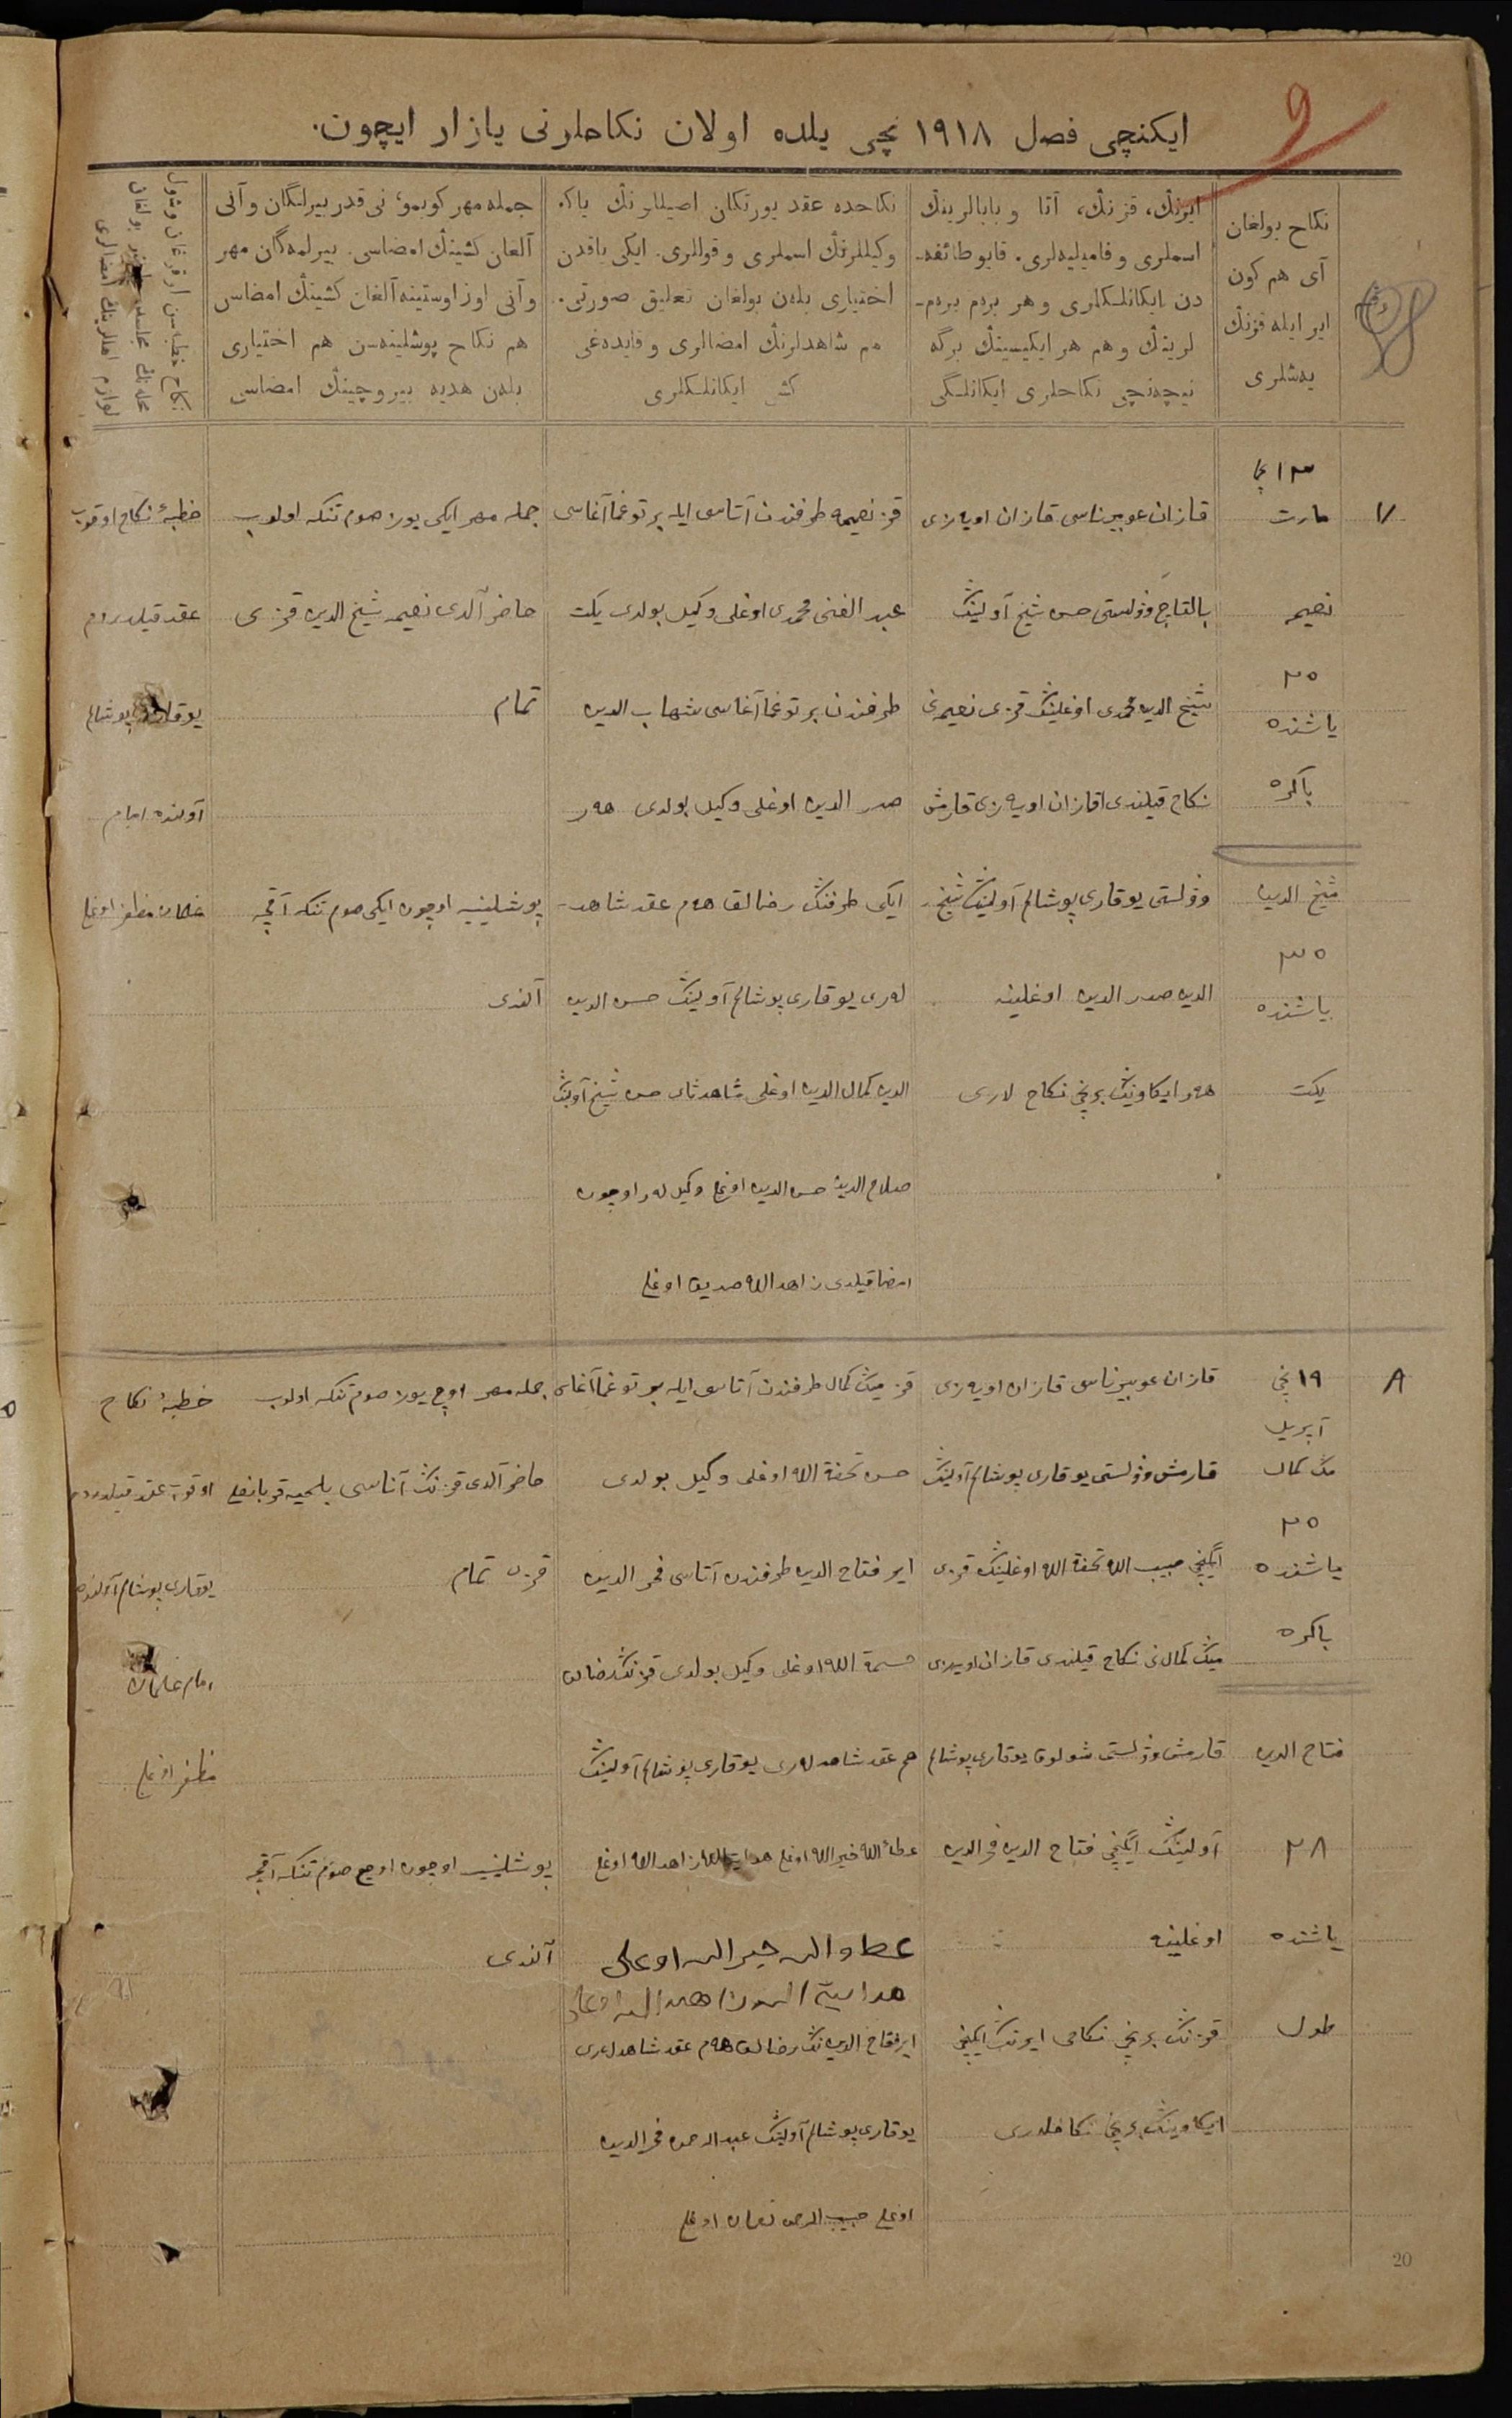 ايكنچی فصل ١٩١٨ نچی يلده اولان نكاحلرنی يازار ايچون.
نكاح بولغان
آی هم كون
اير ايله قزنڭ
يەشلری
ايرنڭ، قزنڭ، آتا و بابالرينڭ
اسملری و فاميليەلری. قايو طائفه-
دن ايكانلكلری و هر برم برم-
لرينڭ و هم هر ايكيسينڭ برگه
نيچەنچی نكاحلری ايكانلگی
نكاحده عقد يورتكان اصيللرنڭ ياكه
وكيللرنڭ اسملری و قوللری. ايكی ياقدن
اختياری بلەن بولغان تعليق صورتی.
هم شاهدلرنڭ امضالری و قايدەغی
كشی ايكانلكلری
جمله مهر كوبمو، نی قدر بيرلگان و آنی
آلغان كشينڭ امضاسی. بيرلمەگان مهر
و آنی اوز اوستينه آلغان كشينڭ امضاسی
هم نكاح پوشلينەسن هم اختياری
بلەن هديه بيروچينڭ امضاسی
٧
١٣ نچی
مارت
نعيمه
٢٥
ياشنده
باكره
شيخ الدين
٣٥
ياشنده
يكت
قازان غوبيرناسی قازان اويەزی
بالتاچ وۋلستی حسن شيخ آولينڭ
شيخ الدين محمدی اوغلينڭ قزی نعيمەنی
نكاح قيلندی قازان اويەزی قارمش
وۋلستی يوقاری پوشالم آولينڭ شيخ
الدين صدر الدين اوغلينه
هەر ايكاوينڭ برنچی نكاح لاری
قز نعيمه طرفندن آتاسی ايله بر توغما آغاسی
عبد الغنی محمدی اوغلی وكيل بولدی يكت
طرفندن بر توغما آغاسی شهاب الدين
صدر الدين اوغلی وكيل بولدی هەر
ايكی طرفنڭ رضالق هەم عقد شاهد-
لەری يوقاری پوشالم آولينڭ حسن الدين
الدين كمال الدين اوغلی شاهد ثانی حسن شيخ آولينڭ
صلاح الدين حسن الدين اوغلی وكيل لەر اوچون
امضا قيلدی زاهد الله صديق اوغلی
جمله مهر ايكی يوز صوم تنكه اولوب
حاضر آلدی نعيمه شيخ الدين قزی
تمام
پوشلينيه اوچون ايكی صوم تنكه آقچه
آلندی
خطبهٔ نكاح اوقوب
عقد قيلدردم
يوقاری پوشالم
آولنده امام
غلمان مظفر اوغلی
٨
١٩ نچی
آپريل
مڭ كمال
٢٥
ياشنده
باكره
فتاح الدين
٢٨
ياشنده
طول
قازان غوبيرناسی قازان اويەزی
قارمش وۋلستی يوقاری پوشالم آولينڭ
ايگنچی حبيب الله تحفة الله اوغلينڭ قزی
مينڭ كمال نی نكاح قيلندی قازان اويەزی
قارمش وۋلستی شولوق يوقاری پوشالم
آولينڭ ايگنچی فتاح الدين فخر الدين
اوغلينه
قزنڭ برنچی نكاحی ايرنڭ ايكنچی
ايكاوينڭ برنچی نكاحلەری
قز مينڭ كمال طرفندن آتاسی ايله بر توغما آغاسی
حسن تحفة الله اوغلی وكيل بولدی
اير فتاح الدين طرفندن آتاسی فخر الدين
حسمة الله اوغلی وكيل بولدی قزنڭ رضالق
هم عقد شاهدلەری يوقاری پوشالم آولينڭ
عطاء الله خير الله اوغلی هداية الله زاهد الله اوغلی
عطاوالله خيرالله اوغلی
هداية الله زاهد الله اوغلی
اير فتاح الدين نڭ رضالق هەم عقد شاهدلەری
يوقاری پوشالم آولينڭ عبد الرحمن فخر الدين
اوغلی حبيب الرحمن نعمان اوغلی
جمله مهر اوچ يوز صوم تنكه اولوب
حاضر آلدی قزنڭ آناسی قربانغلی
قزی تمام
پوشلينيه اوچون اوچ صوم تنكه آقچه
آلندی
خطبهٔ نكاح
اوقوب عقد قيلدردم
يوقاری پوشالم آولنده
امام غلمان
مظفر اوغلی
20